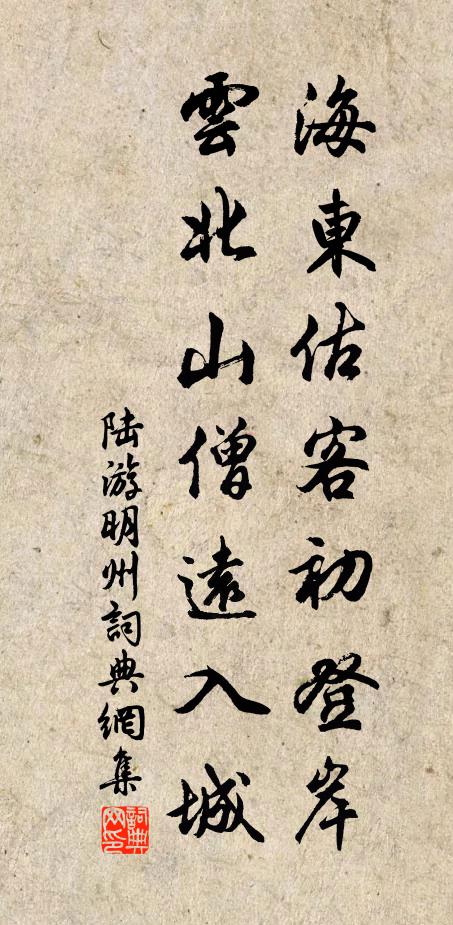 海東估客初登岸
雲北山僧遠入城
陆游明州詞典網集
詞典網印